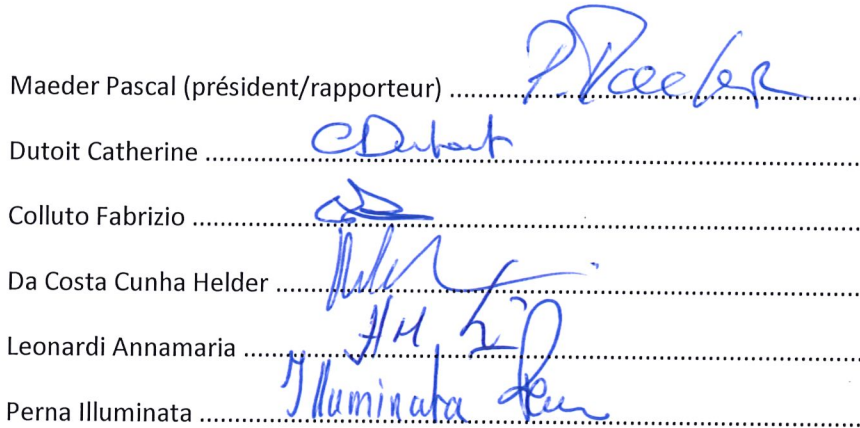 Maeder Pascal (président/rapporteur) .......... P. Maeder
Dutoit Catherine .......... CDutoit
Colluto Fabrizio ..........
Da Costa Cunha Helder ..........
Leonardi Annamaria ..........
Perna Illuminata .......... Illuminata